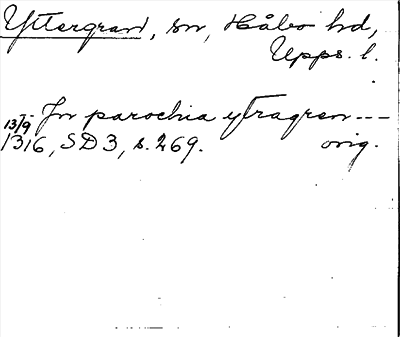 Yttergran, sn, Håbo hd,
Upps. l.
In parochia ytragren ---
13/9 1316, SD 3, s. 269. orig.